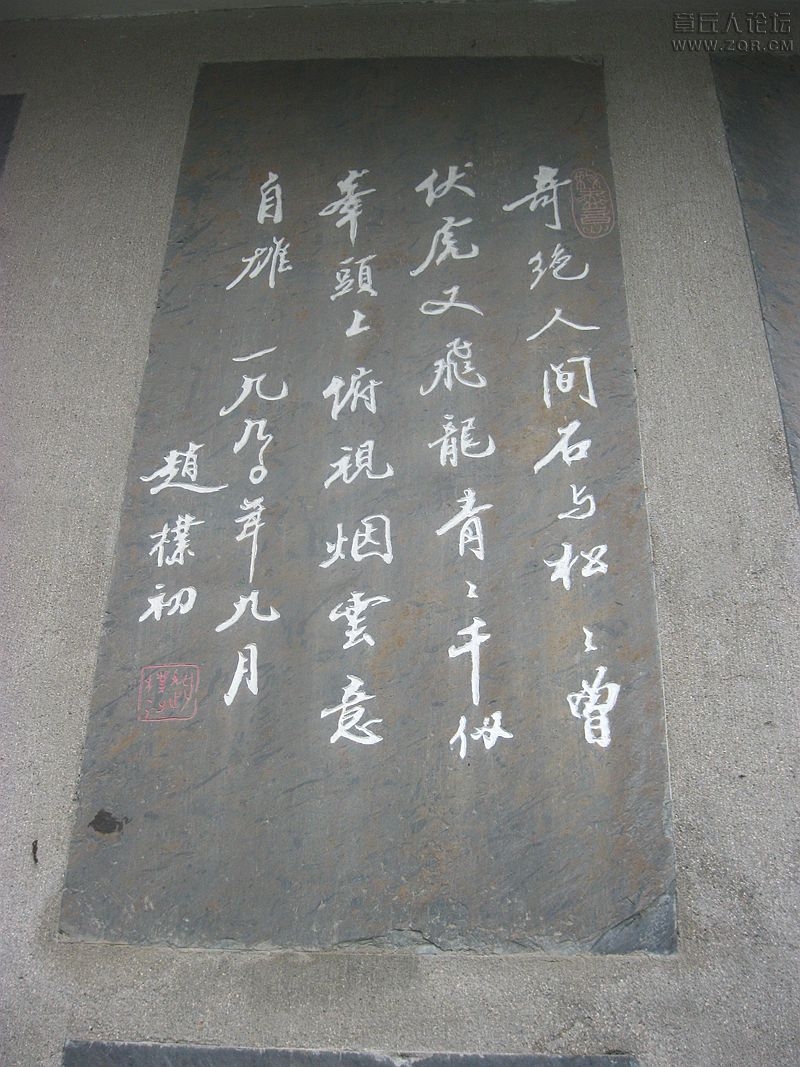 章丘人论坛
WWW.ZQR.CM
奇绝人间石与松〻曾
伏虎又飛龍青〻千仭
峯頭上俯視烟雲意
自雄 一九九〇年九月
趙樸初